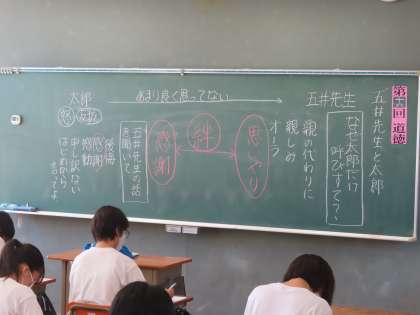 第三回 道徳
五井先生と太郎
五井先生
なぜ太郎だけ
呼びすて?
親の代わりに
親しみ
オーラ
あまり良く思ってない
思いやり
絆
感謝
五井先生の話
を聞いて
太郎
後悔
感謝
感動
申し訳ない
はじめから
言ってよ